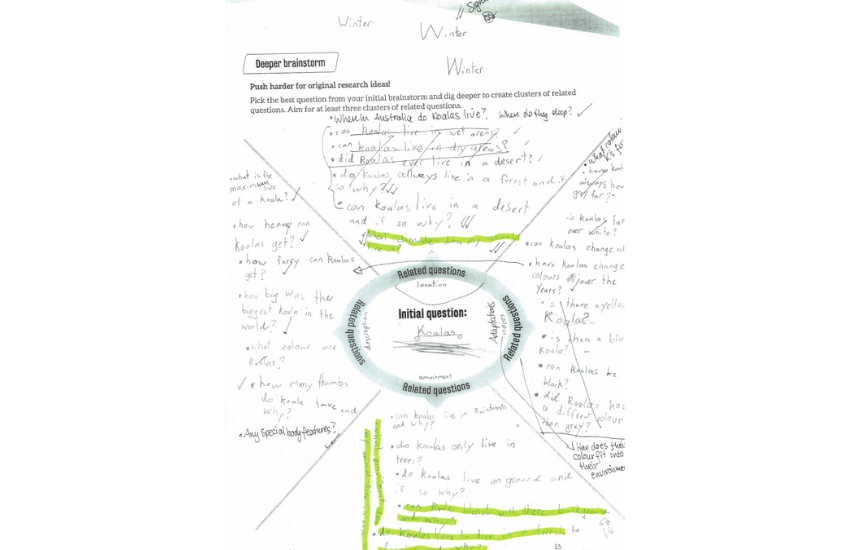 Winter
Winter
Winter
Deeper brainstorm
Push harder for original research ideas!
Pick the best question from your initial brainstorm and dig deeper to create clusters of related
questions. Aim for at least three clusters of related questions.
• Where in Australia do Koalas live? Where do they sleep? ✓
• can Koalas live in wet areas?
• can koalas live in dry areas?
• did Koalas ever live in a desert?
• do Koalas always live in a forest and if
so why?
• can koalas live in a desert
and if so why?
• what is the
maximum size
of a koala?
• how heavy can
Koalas get?
• how furry can Koalas
get?
• how big was the
biggest koala in the
world?
• what colour are
Koalas?
• how many thumbs
do koala have and
why?
• Any special body features?
Related questions
location
Related questions
description
Initial question:
Koalas
Adaptations
Related questions
enviroment
Related questions
• what colour
always
grey fur?
is Koalas fur
over white?
• can koalas change
• have koalas change
colours over the
years?
• is there a yellow
Koala?
• is there a
Koala?
• can Koalas be
black?
• did Koalas
a differet colour
then grey?
How does their
colour fit into
their
• can koalas live in Rainforests
and why?
• do koalas only live in
trees?
• do Koalas live on ground and
if so why?